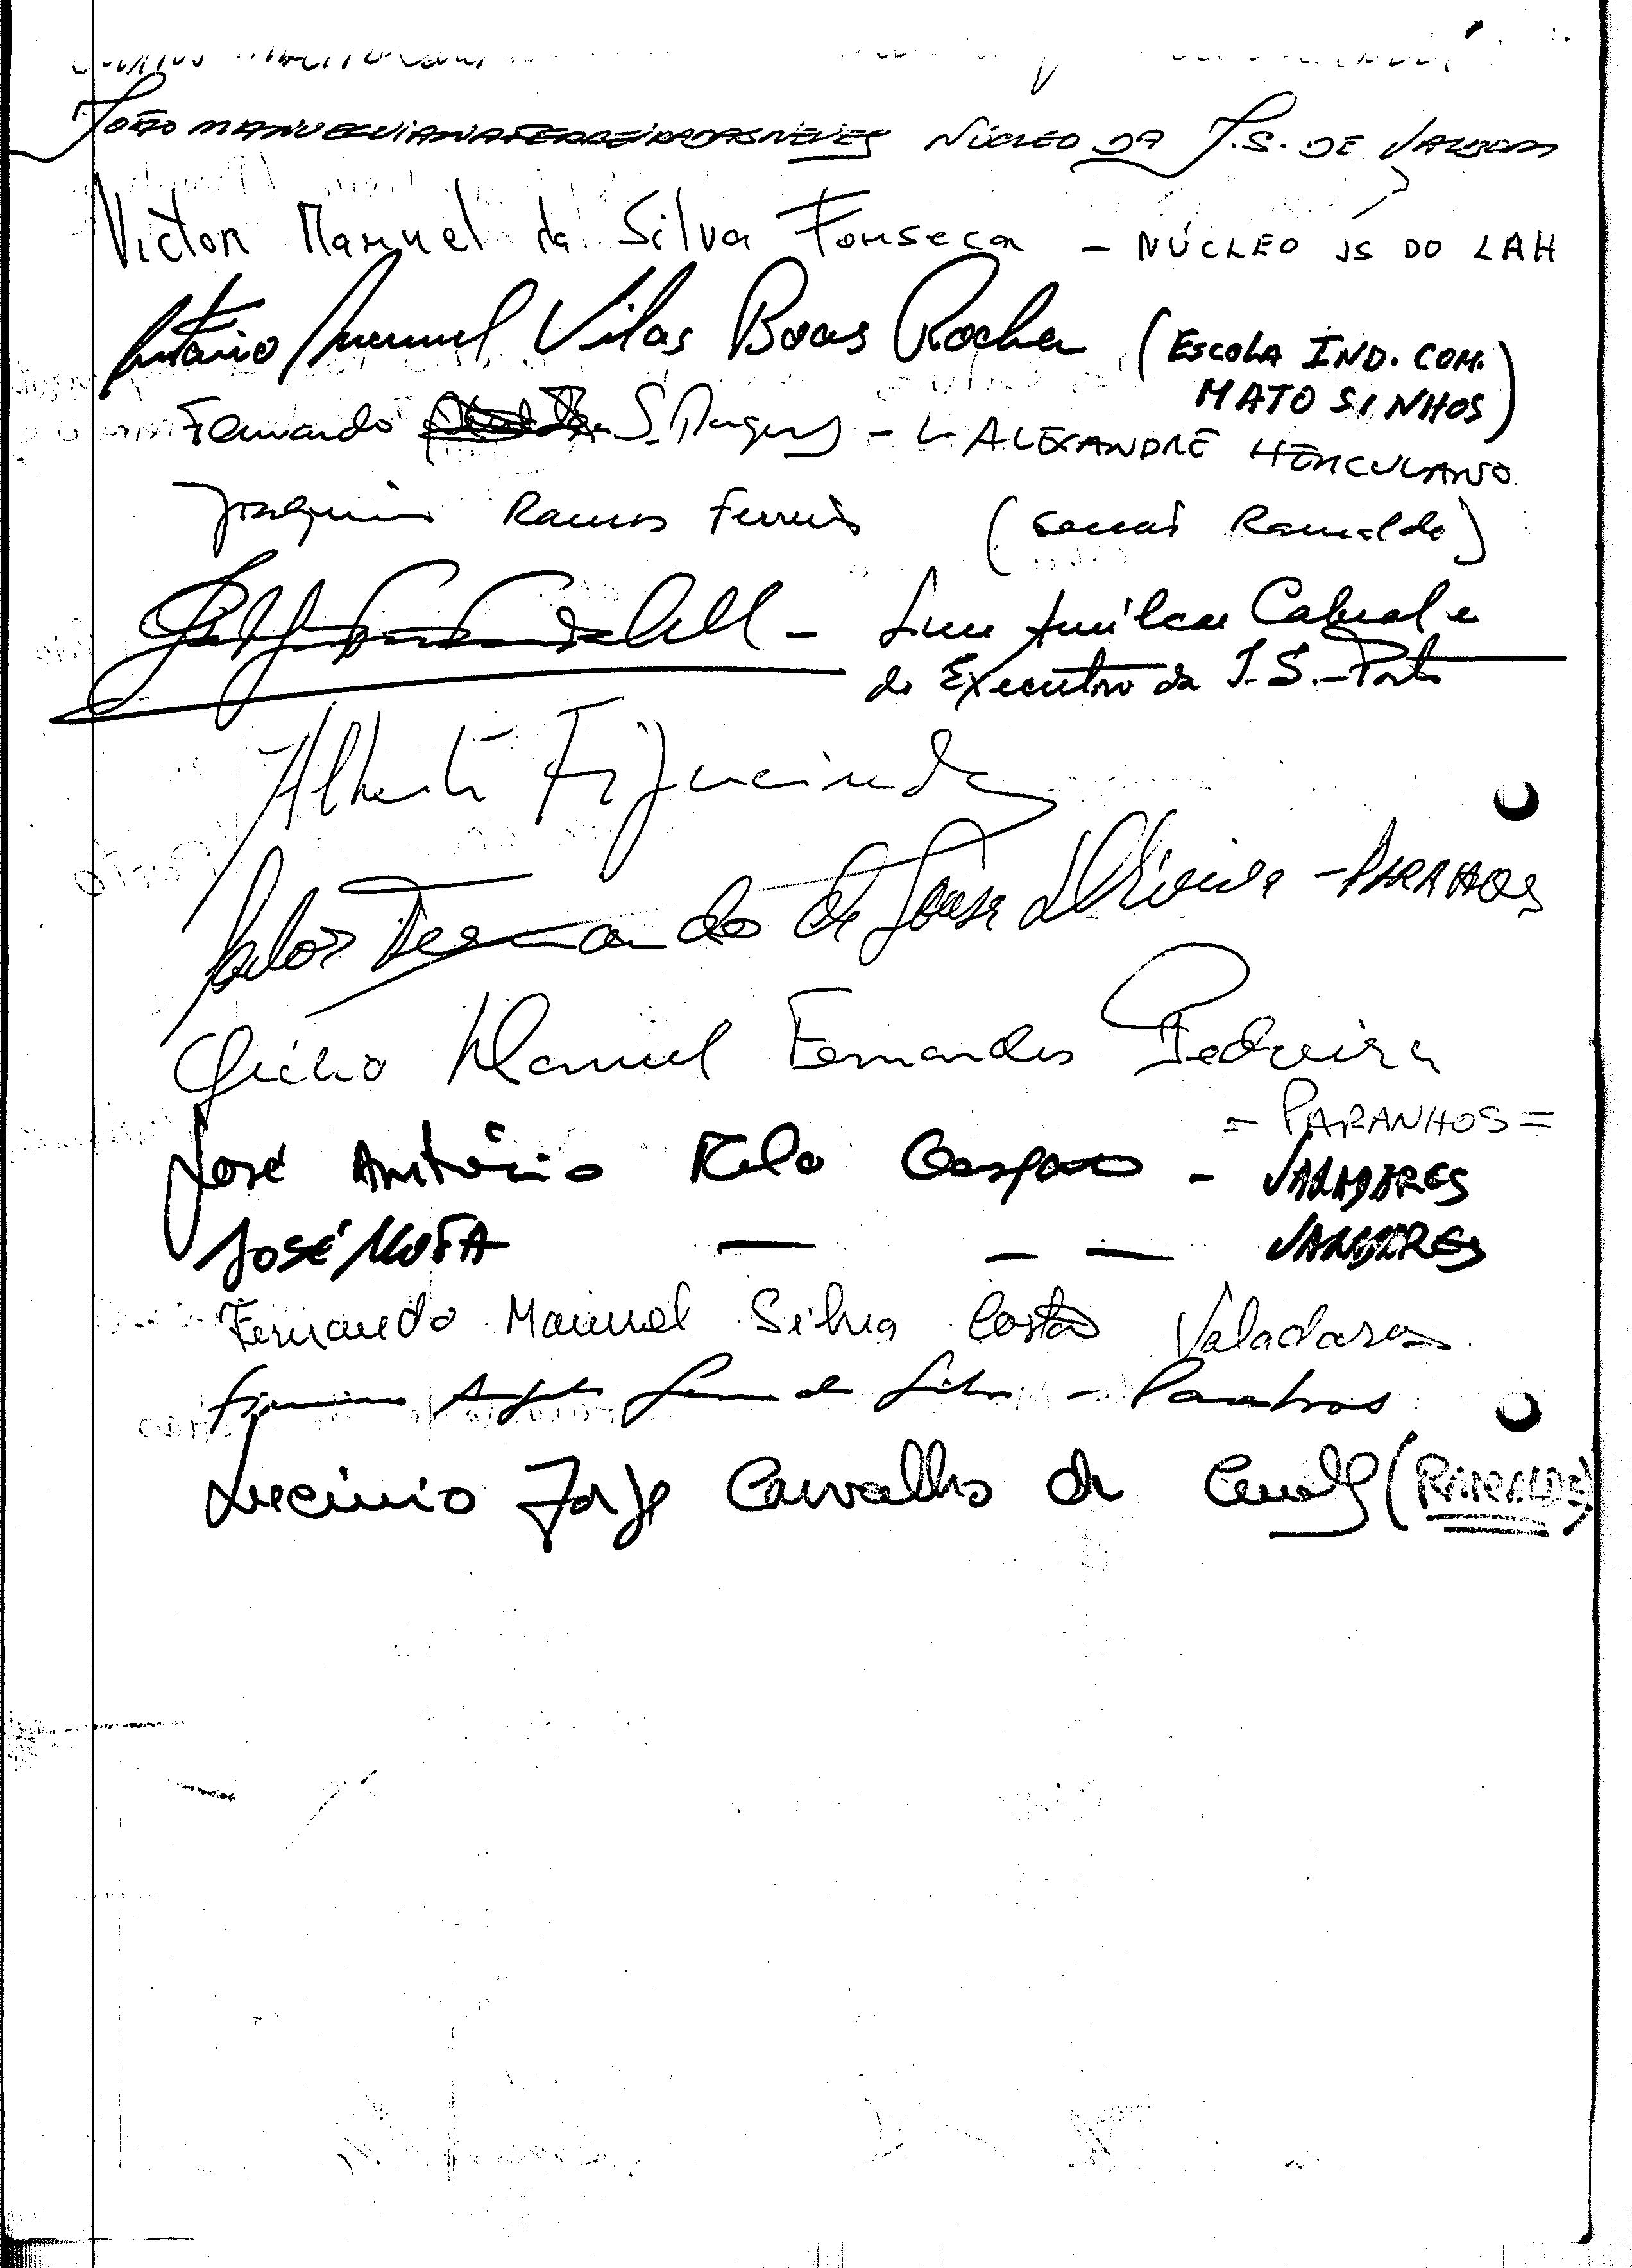 João Manuel Viana Ferreira das Neves NÚCLEO DA J.S. DE
Victor Manuel da Silva Fonseca - NÚCLEO JS DO LAH
António Manuel Vilas Boas Rocha (ESCOLA IND. COM.
MATOSINHOS)
Fernando S. Marques - L. ALEXANDRE HERCULANO
Joaquim Ramos Ferreira (Ramalde)
- Liceu Amílcar Cabral e
do Executivo da J.S. - Porto
Alberto Figueiredo
Carlos Fernando de Sousa Oliveira - PARANHOS
Manuel Fernandes Pedreira
= PARANHOS =
José António Melo Gaspar - VALADARES
JOSÉ MOTA — — — VALADARES
Fernando Manuel Silva Costa Valadares
da Silva - Paranhos
Licínio Jorge Carvalho de (RAMALDE)